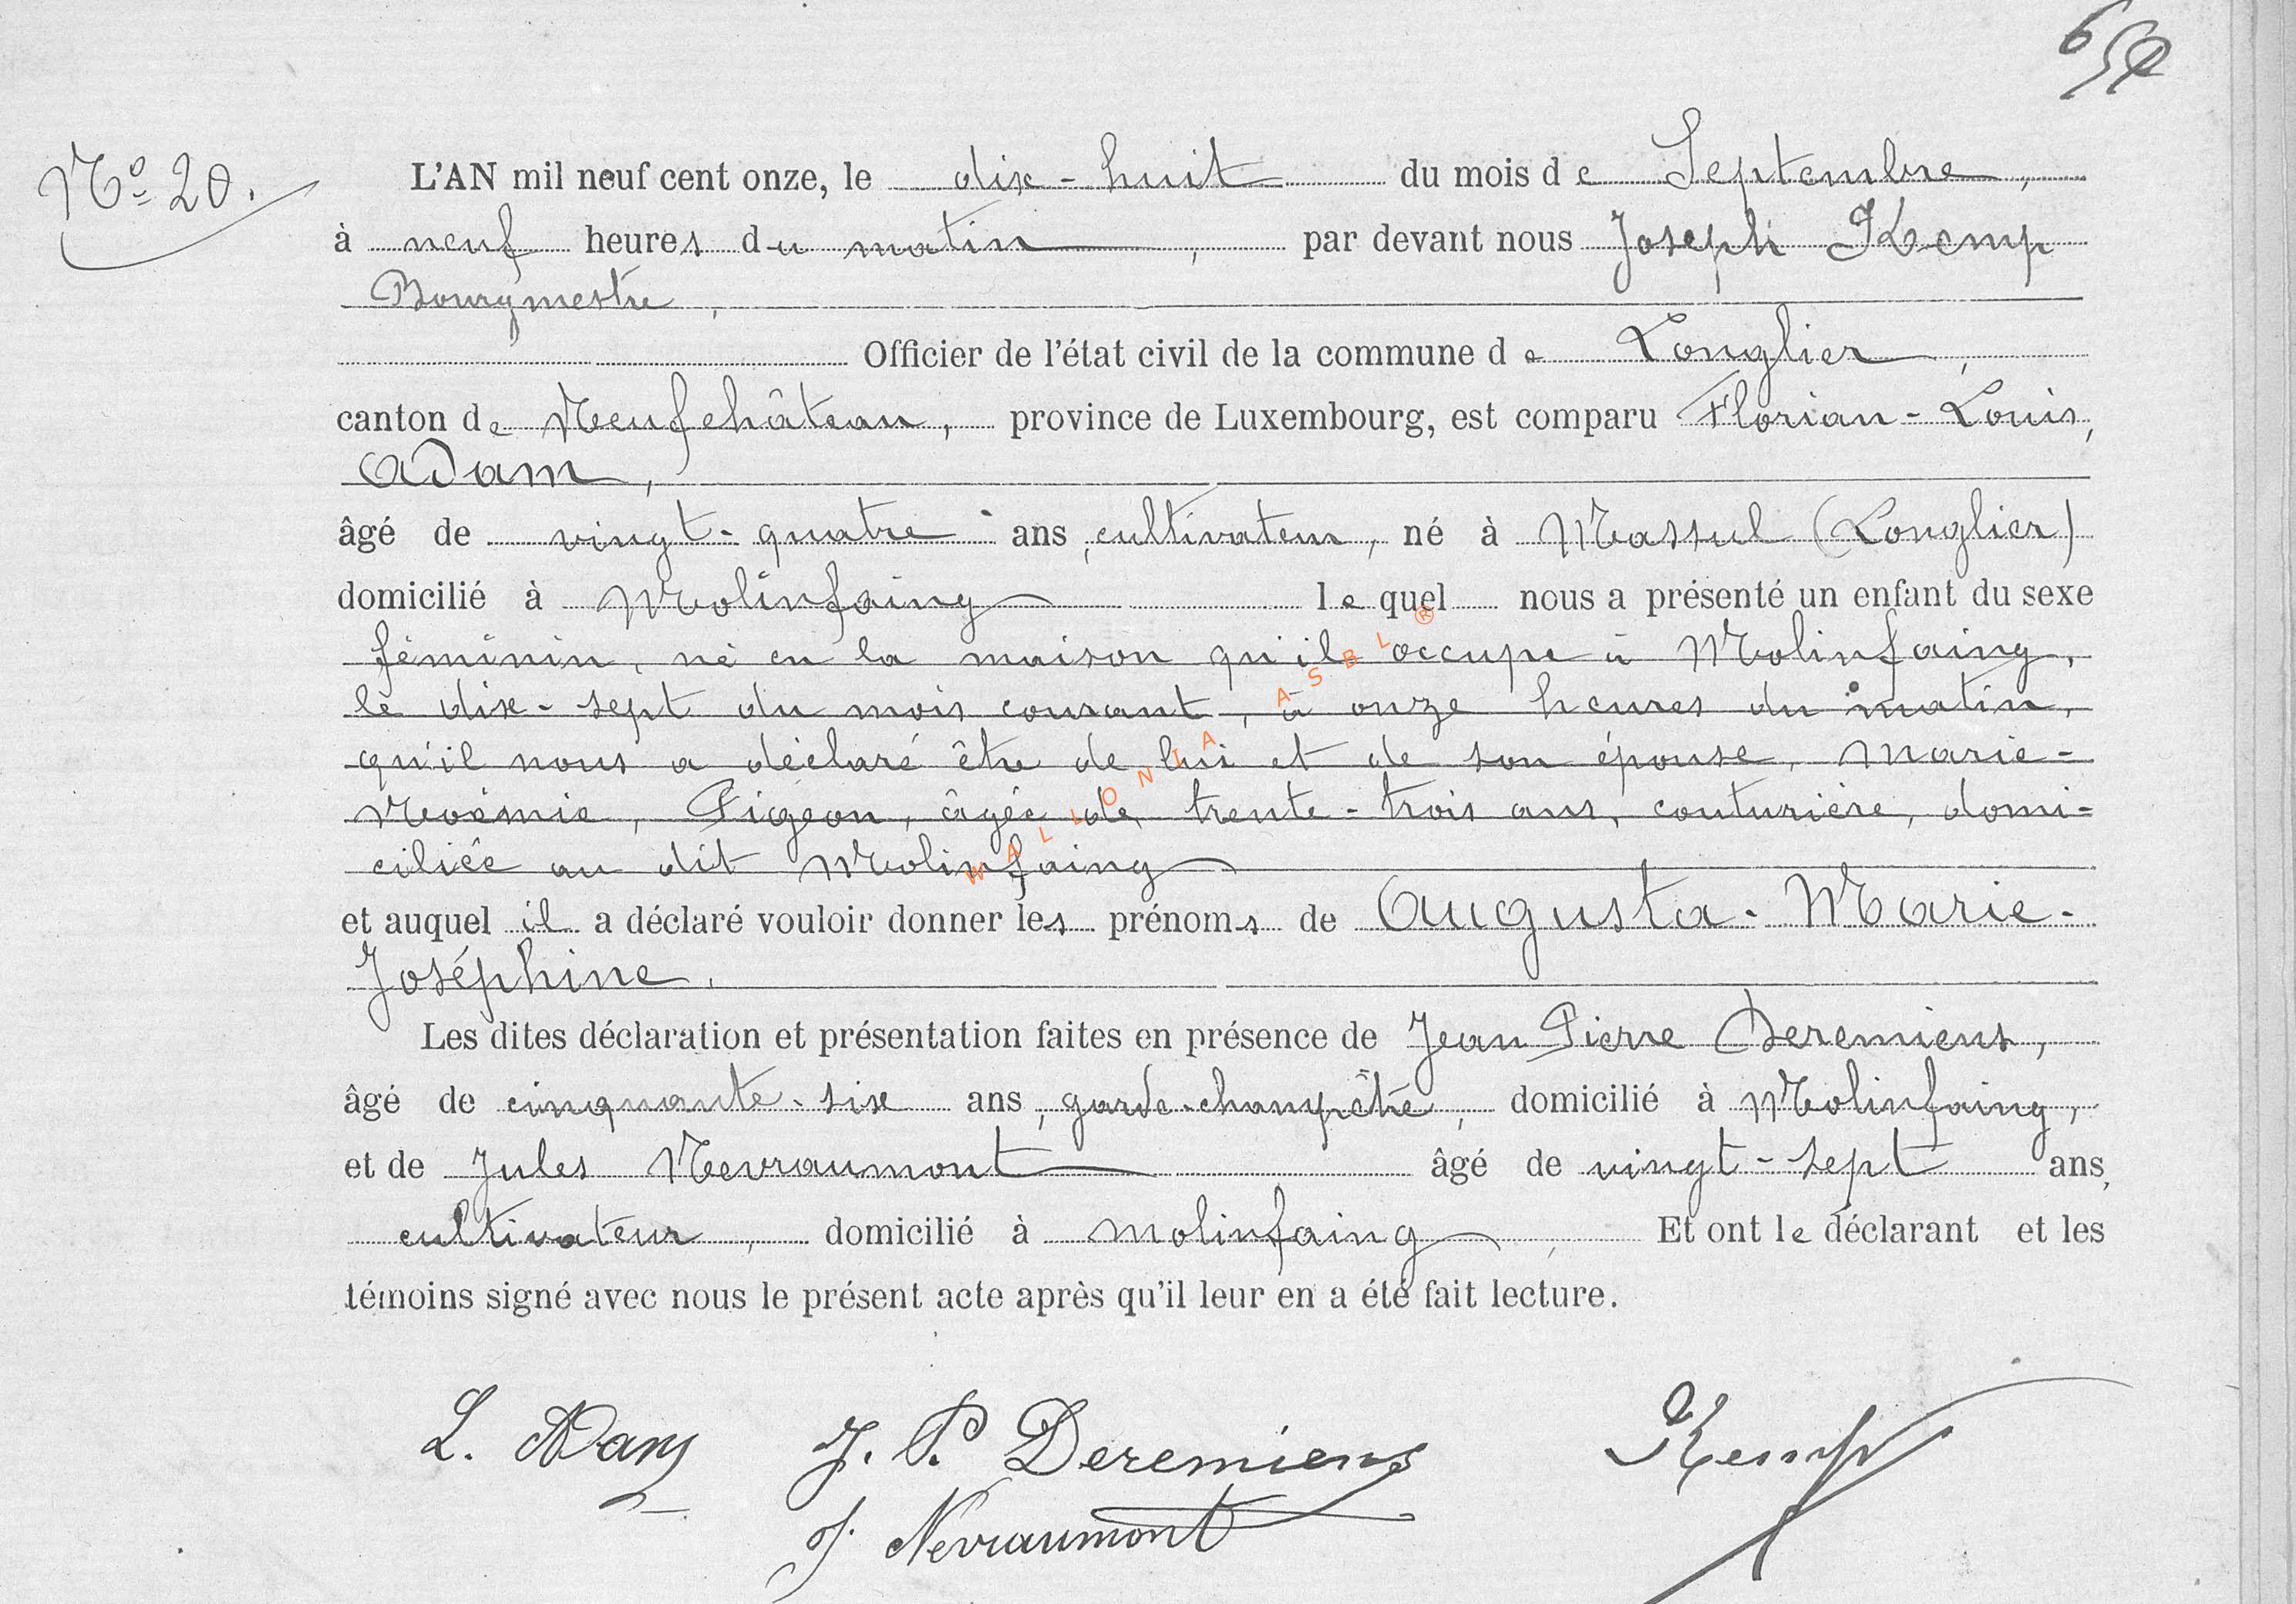 Nº 20.
L'AN mil neuf cent onze, le dix-huit du mois de Septembre,
à neuf heures du matin, par devant nous Joseph Kemp
Bourgmestre,
Officier de l'état civil de la commune de Longlier,
canton de Neufchâteau, province de Luxembourg, est comparu Florian-Louis,
Adam,
âgé de vingt-quatre ans, cultivateur, né à Massul (Longlier)
domicilié à Molinfaing lequel nous a présenté un enfant du sexe
féminin, né en la maison qu'il occupe à Molinfaing,
le dix-sept du mois courant, à onze heures du matin,
qu'il nous a déclaré être de lui et de son épouse, Marie-
Noémie, Pigeon, âgée de trente-trois ans, couturière, domi=
ciliée au dit Molinfaing
et auquel il a déclaré vouloir donner les prénoms de Augusta-Marie-
Joséphine.
Les dites déclaration et présentation faites en présence de Jean Pierre Deremiens,
âgé de cinquante-six ans, garde-champêtre, domicilié à Molinfaing,
et de Jules Nevraumont âgé de vingt-sept ans,
cultivateur, domicilié à Molinfaing, Et ont le déclarant et les
témoins signé avec nous le présent acte après qu'il leur en a été fait lecture.
L. Adam J. P. Deremiens Kemp
J. Nevraumont
WALLONIA ASBL ®